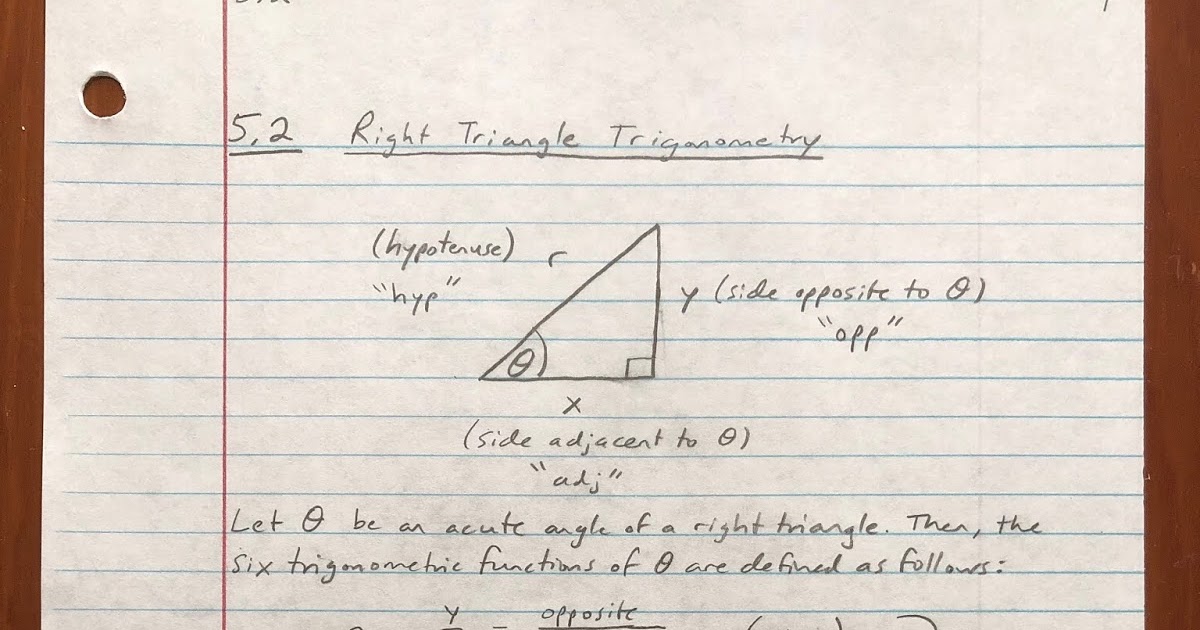 5.2 Right Triangle Trigonometry
(hypotenuse) r
"hyp"
y (side opposite to θ)
"opp"
θ
x
(side adjacent to θ)
"adj"
Let θ be an acute angle of a right triangle. Then, the
six trigonometric functions of θ are defined as follows:
y opposite